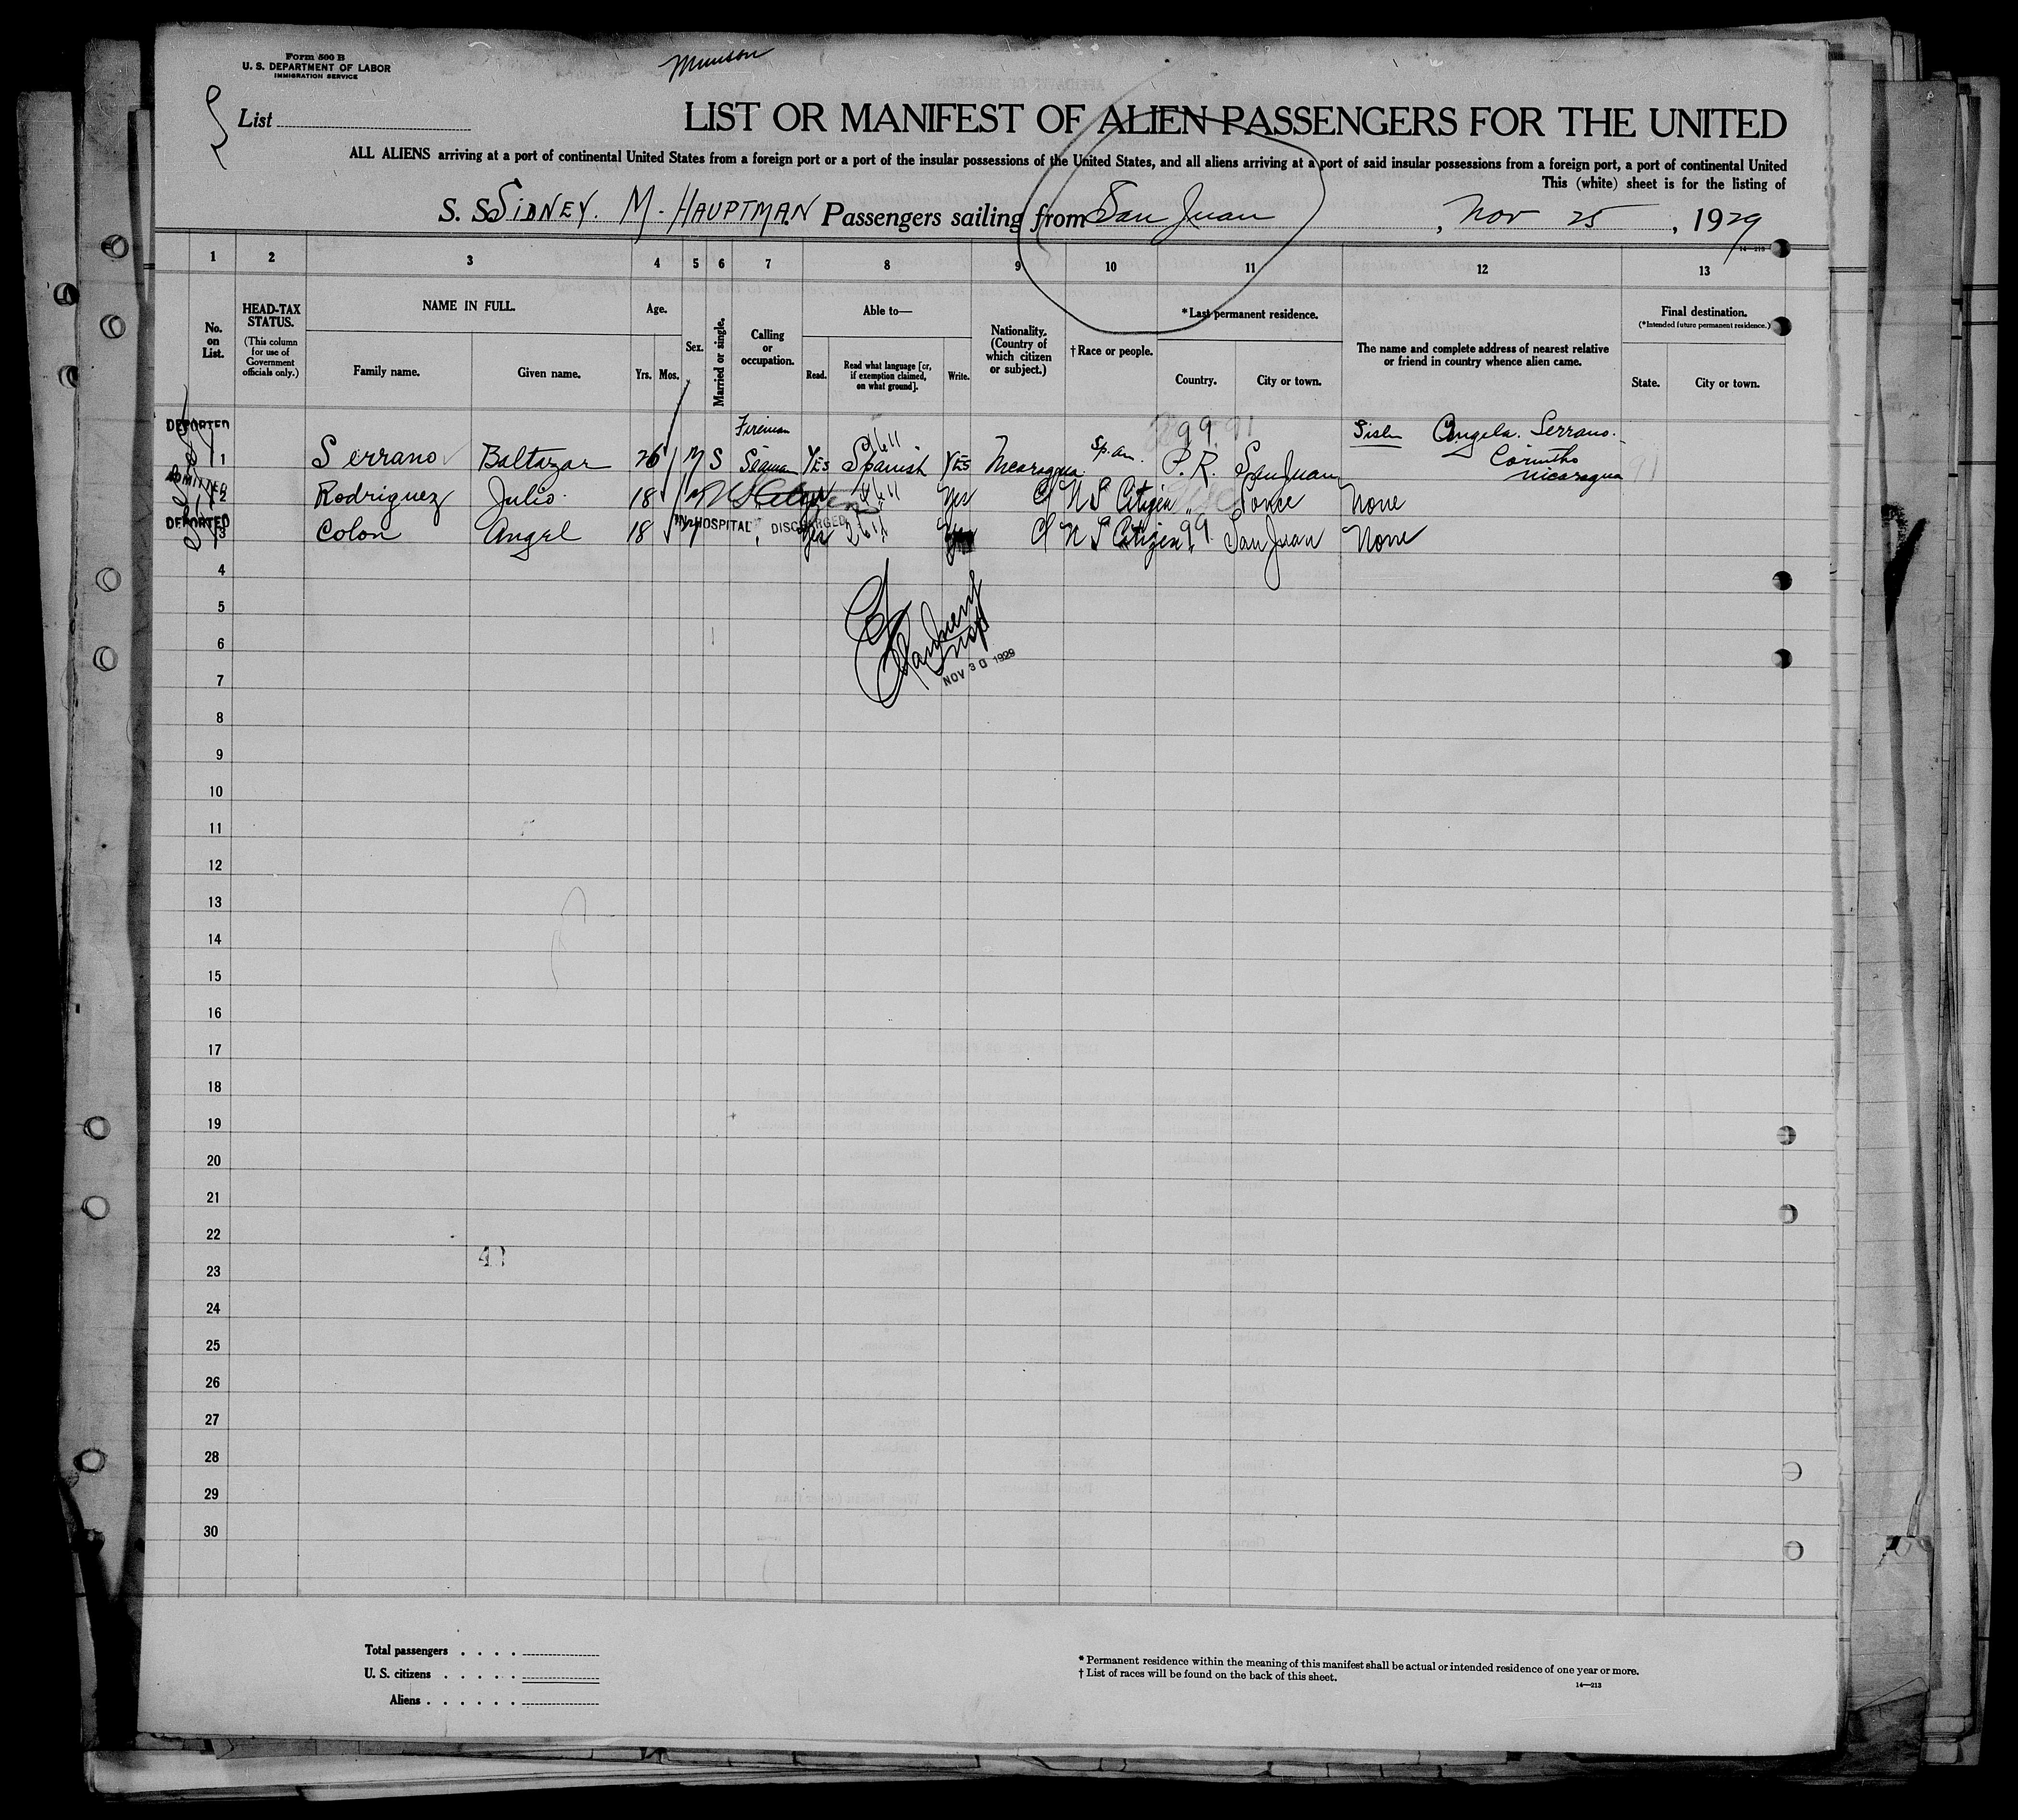 Form 500 B
U. S. DEPARTMENT OF LABOR
IMMIGRATION SERVICE
Munson
List
LIST OR MANIFEST OF ALIEN PASSENGERS FOR THE UNITED
ALL ALIENS arriving at a port of continental United States from a foreign port or a port of the insular possessions of the United States, and all aliens arriving at a port of said insular possessions from a foreign port, a port of continental United
This (white) sheet is for the listing of
S. S. SIDNEY. M. HAUPTMAN Passengers sailing from San Juan, Nov 25, 1929
14—213
1 2 3 4 5 6 7 8 9 10 11 12 13
No. on List.
HEAD-TAX STATUS.
(This column for use of Government officials only.)
NAME IN FULL.
Family name.
Given name.
Age.
Yrs. Mos.
Sex.
Married or single.
Calling or occupation.
Able to—
Read.
Read what language [or, if exemption claimed, on what ground].
Write.
Nationality. (Country of which citizen or subject.)
†Race or people.
*Last permanent residence.
Country.
City or town.
The name and complete address of nearest relative or friend in country whence alien came.
Final destination.
(*Intended future permanent residence.)
State.
City or town.
DEPORTED
Fireman
99 91
Sister Angela. Serrano.
1 Serrano Baltazar 26 M S Seaman YES Spanish YES Nicaragua Sp. am. P. R. San Juan Corintho
Nicaragua 91
ADMITTED
2 Rodriguez Julio 18 M Yes U S Citizen " Ponce None
DEPORTED
IN HOSPITAL DISCHARGED
3 Colon Angel 18 M " Yes Yes U S Citizen 99 San Juan None
4
5
6
7
NOV 30 1929
8
9
10
11
12
13
14
15
16
17
18
19
20
21
22
23
24
25
26
27
28
29
30
Total passengers
U. S. citizens
Aliens
* Permanent residence within the meaning of this manifest shall be actual or intended residence of one year or more.
† List of races will be found on the back of this sheet.
14—213